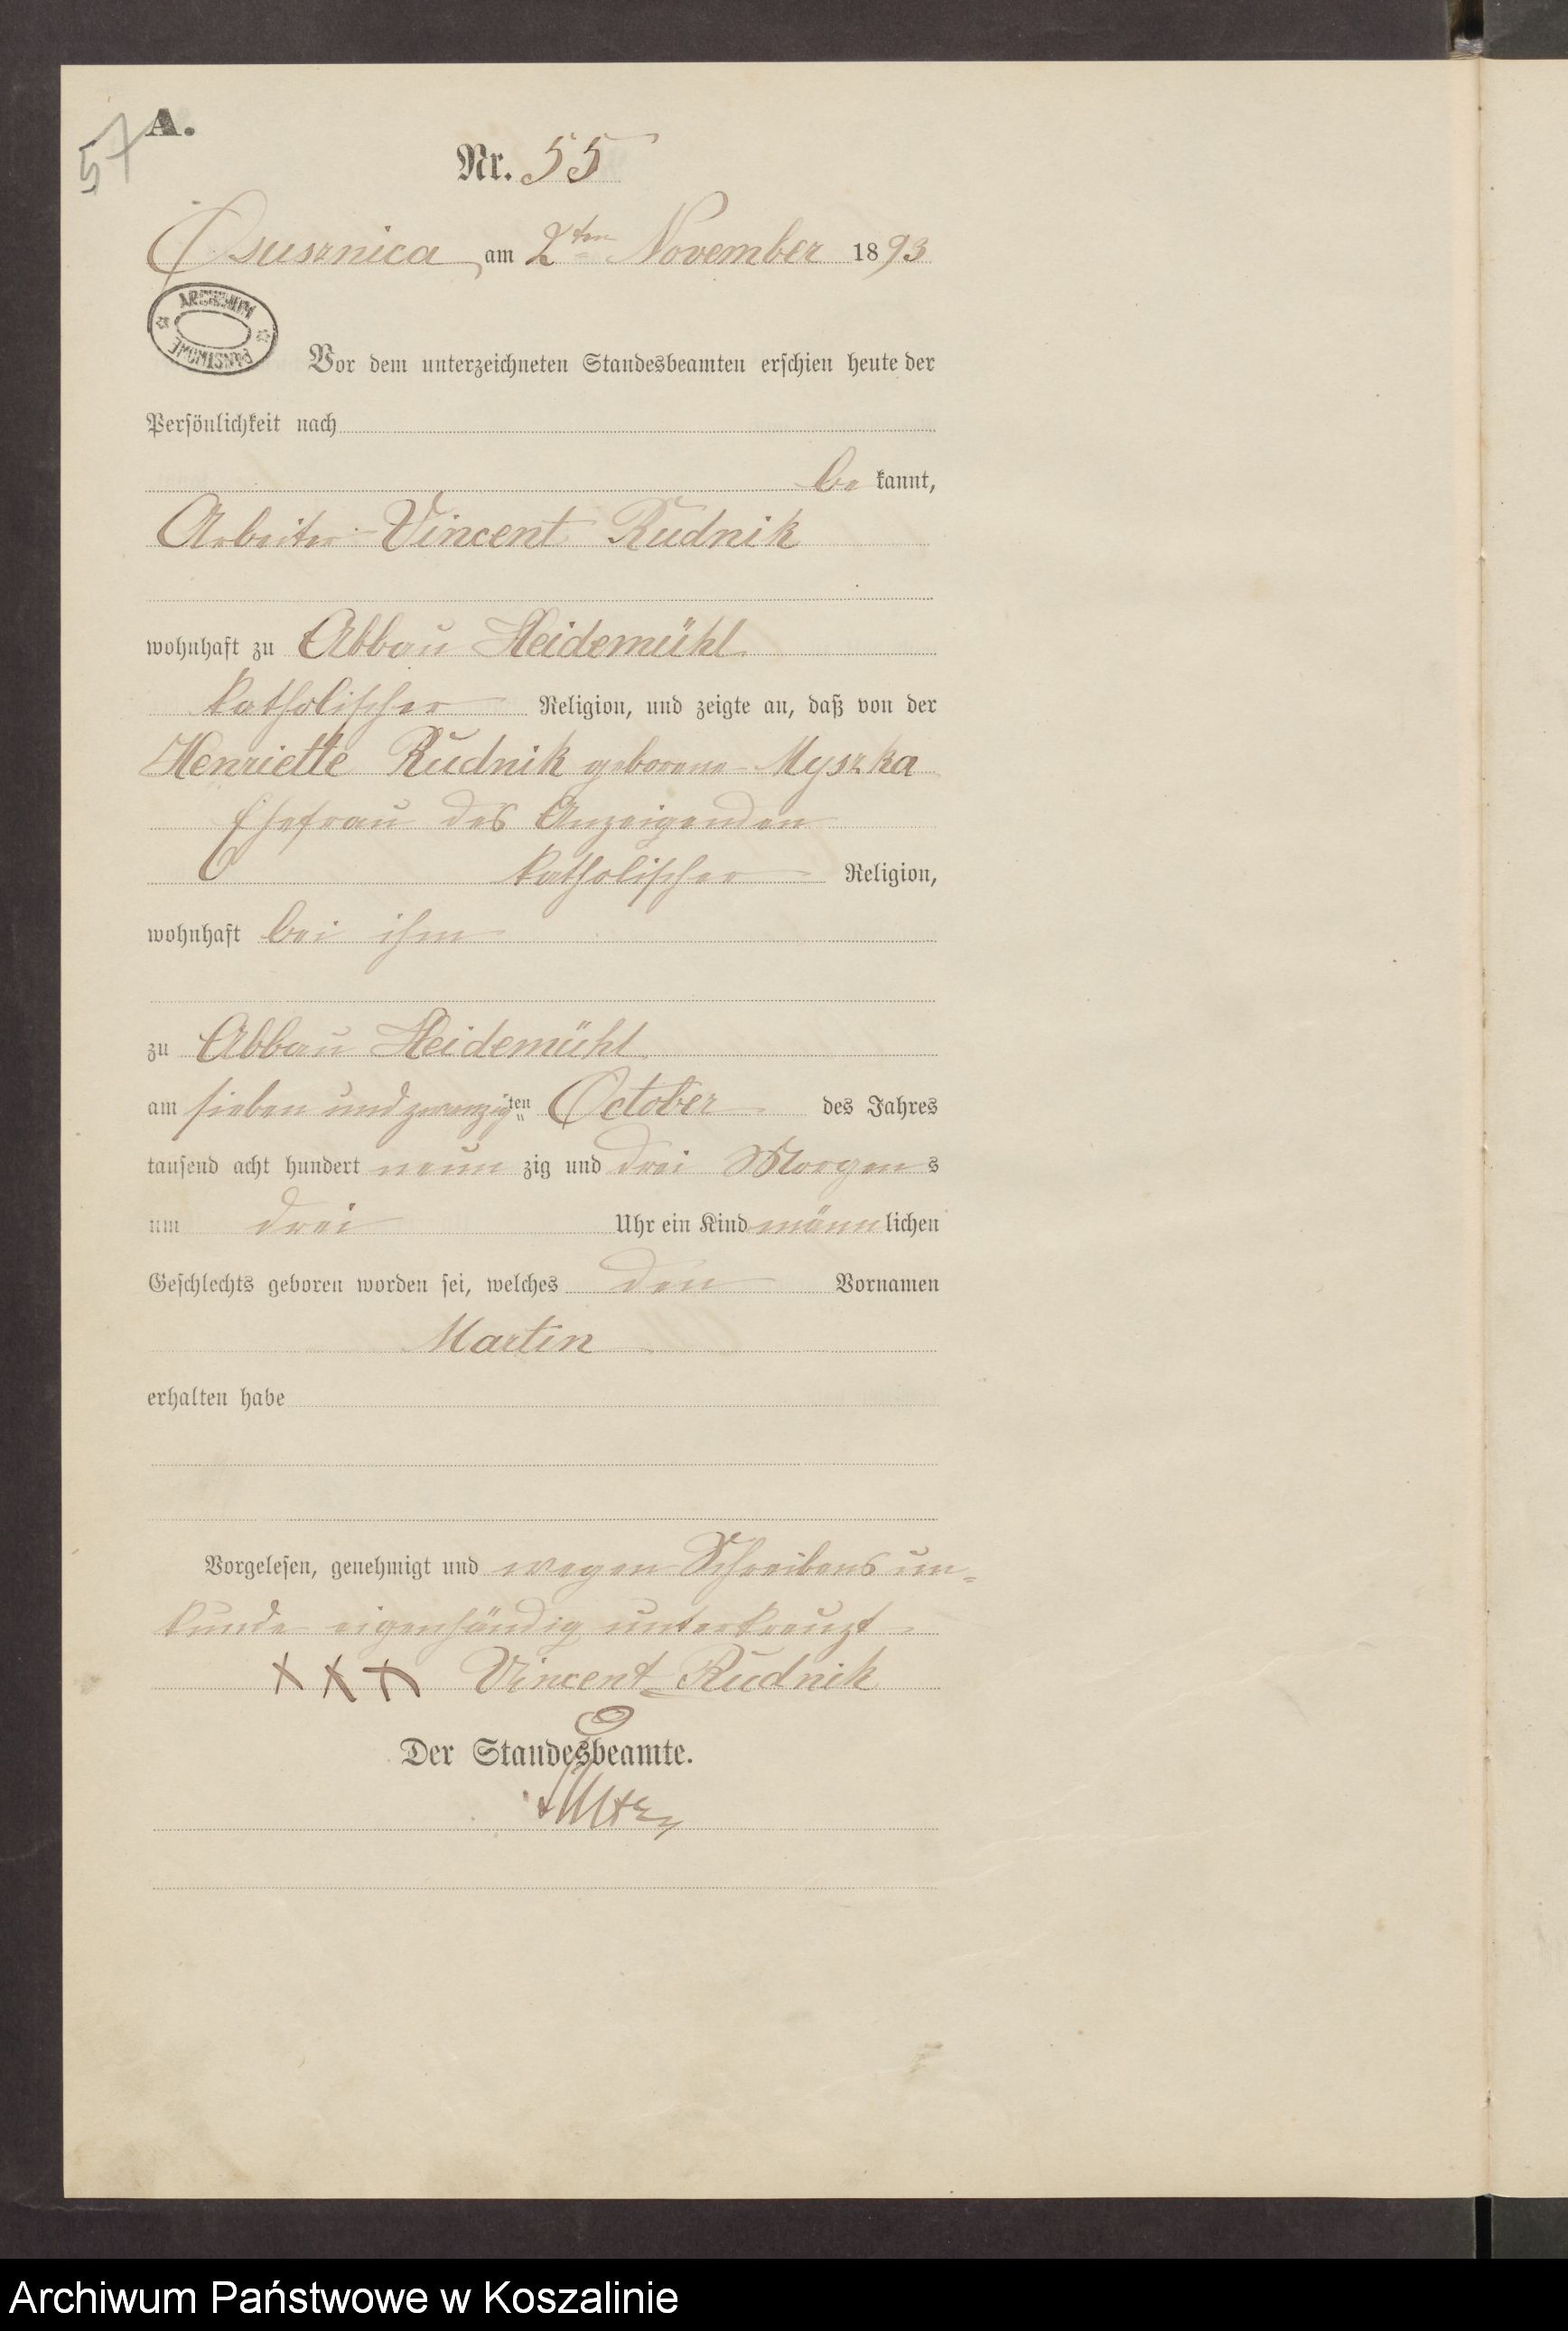 A.
57
Nr. 55
Ossusznica am 2ten November 1893
ARCHIWUM PAŃSTWOWE
Vor dem unterzeichneten Standesbeamten erschien heute der
Persönlichkeit nach
be kannt,
Arbeiter Vincent Rudnik
wohnhaft zu Abbau Heidemühl
katholischer Religion, und zeigte an, daß von der
Henriette Rudnik geborene Myszka
Ehefrau des Anzeigenden
katholischer Religion,
wohnhaft bei ihm
zu Abbau Heidemühl
am sieben und zwanzigsten October des Jahres
tausend acht hundert neun zig und drei Morgens
um drei Uhr ein Kind männlichen
Geschlechts geboren worden sei, welches den Vornamen
Martin
erhalten habe
Vorgelesen, genehmigt und wegen Schreibensun=
kunde eigenhändig unterkreuzt
XXX Vincent Rudnik
Der Standesbeamte.
Archiwum Państwowe w Koszalinie